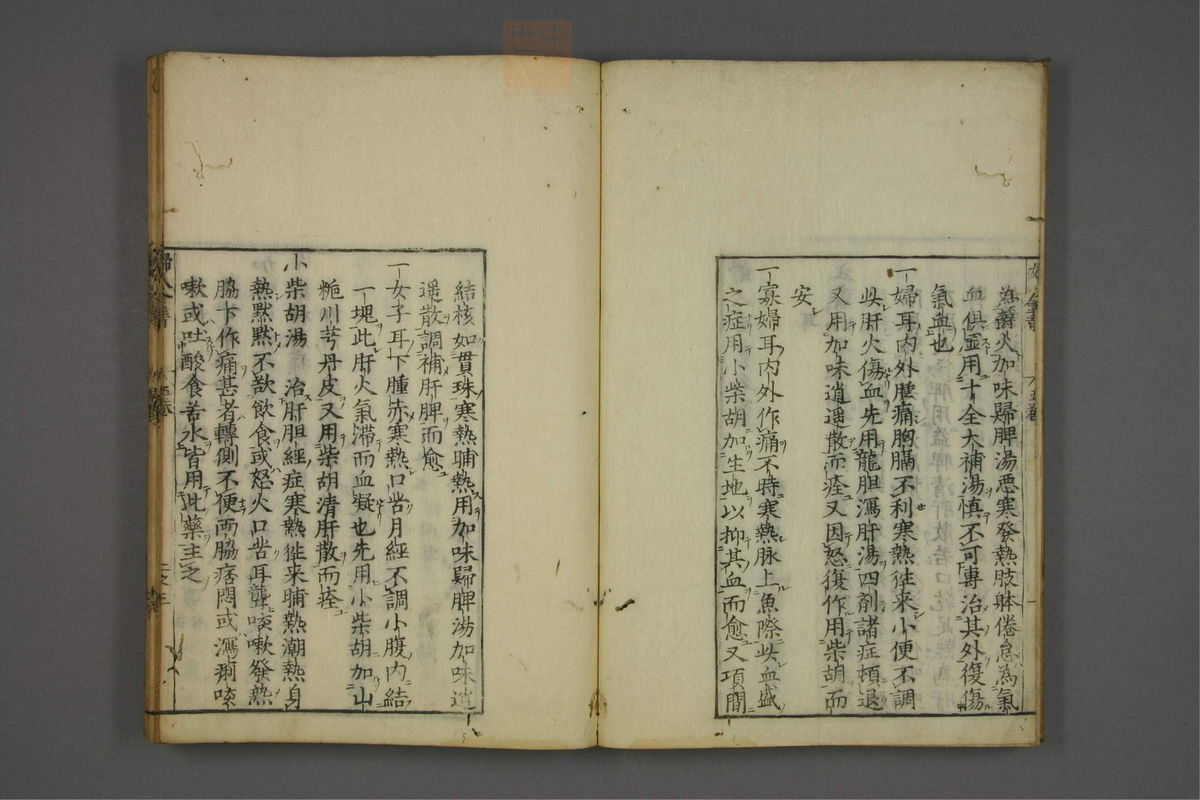 為鬱火加味歸脾湯惡寒發熱肢躰倦怠為氣
血俱虛用十全大補湯慎不可專治其外復傷
氣血也
一婦耳内外腫痛胸膈不利寒熱徃来小便不調
此肝火傷血先用龍胆瀉肝湯四剤諸症頓退
又用加味逍遥散而痊又因怒復作用柴胡而
安
一寡婦耳内外作痛不時寒熱脉上魚際此血盛
之症用小柴胡加生地以抑其血而愈又項間
結核如貫珠寒熱晡熱用加味歸脾湯加味逍
遥散調補肝脾而愈
一女子耳下腫赤寒熱口苦月經不調小腹内結
一塊此肝火氣滞而血凝也先用小柴胡加山
梔川芎丹皮又用柴胡清肝散而痊
小柴胡湯　治肝胆經症寒熱徃来晡熱潮熱身
熱黙黙不欲飲食或怒火口苦耳聾咳嗽發熱
脇下作痛甚者轉側不便両脇痞悶或瀉痢咳
嗽或吐酸食苦水皆用此藥主之